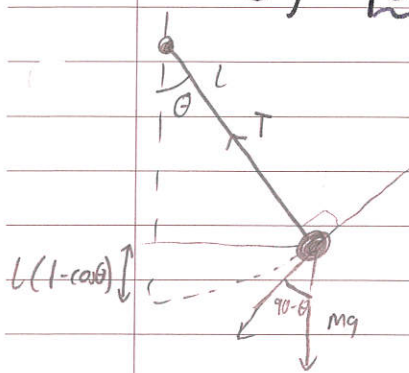 L
θ
T
L(1-cosθ)
90-θ
Mg